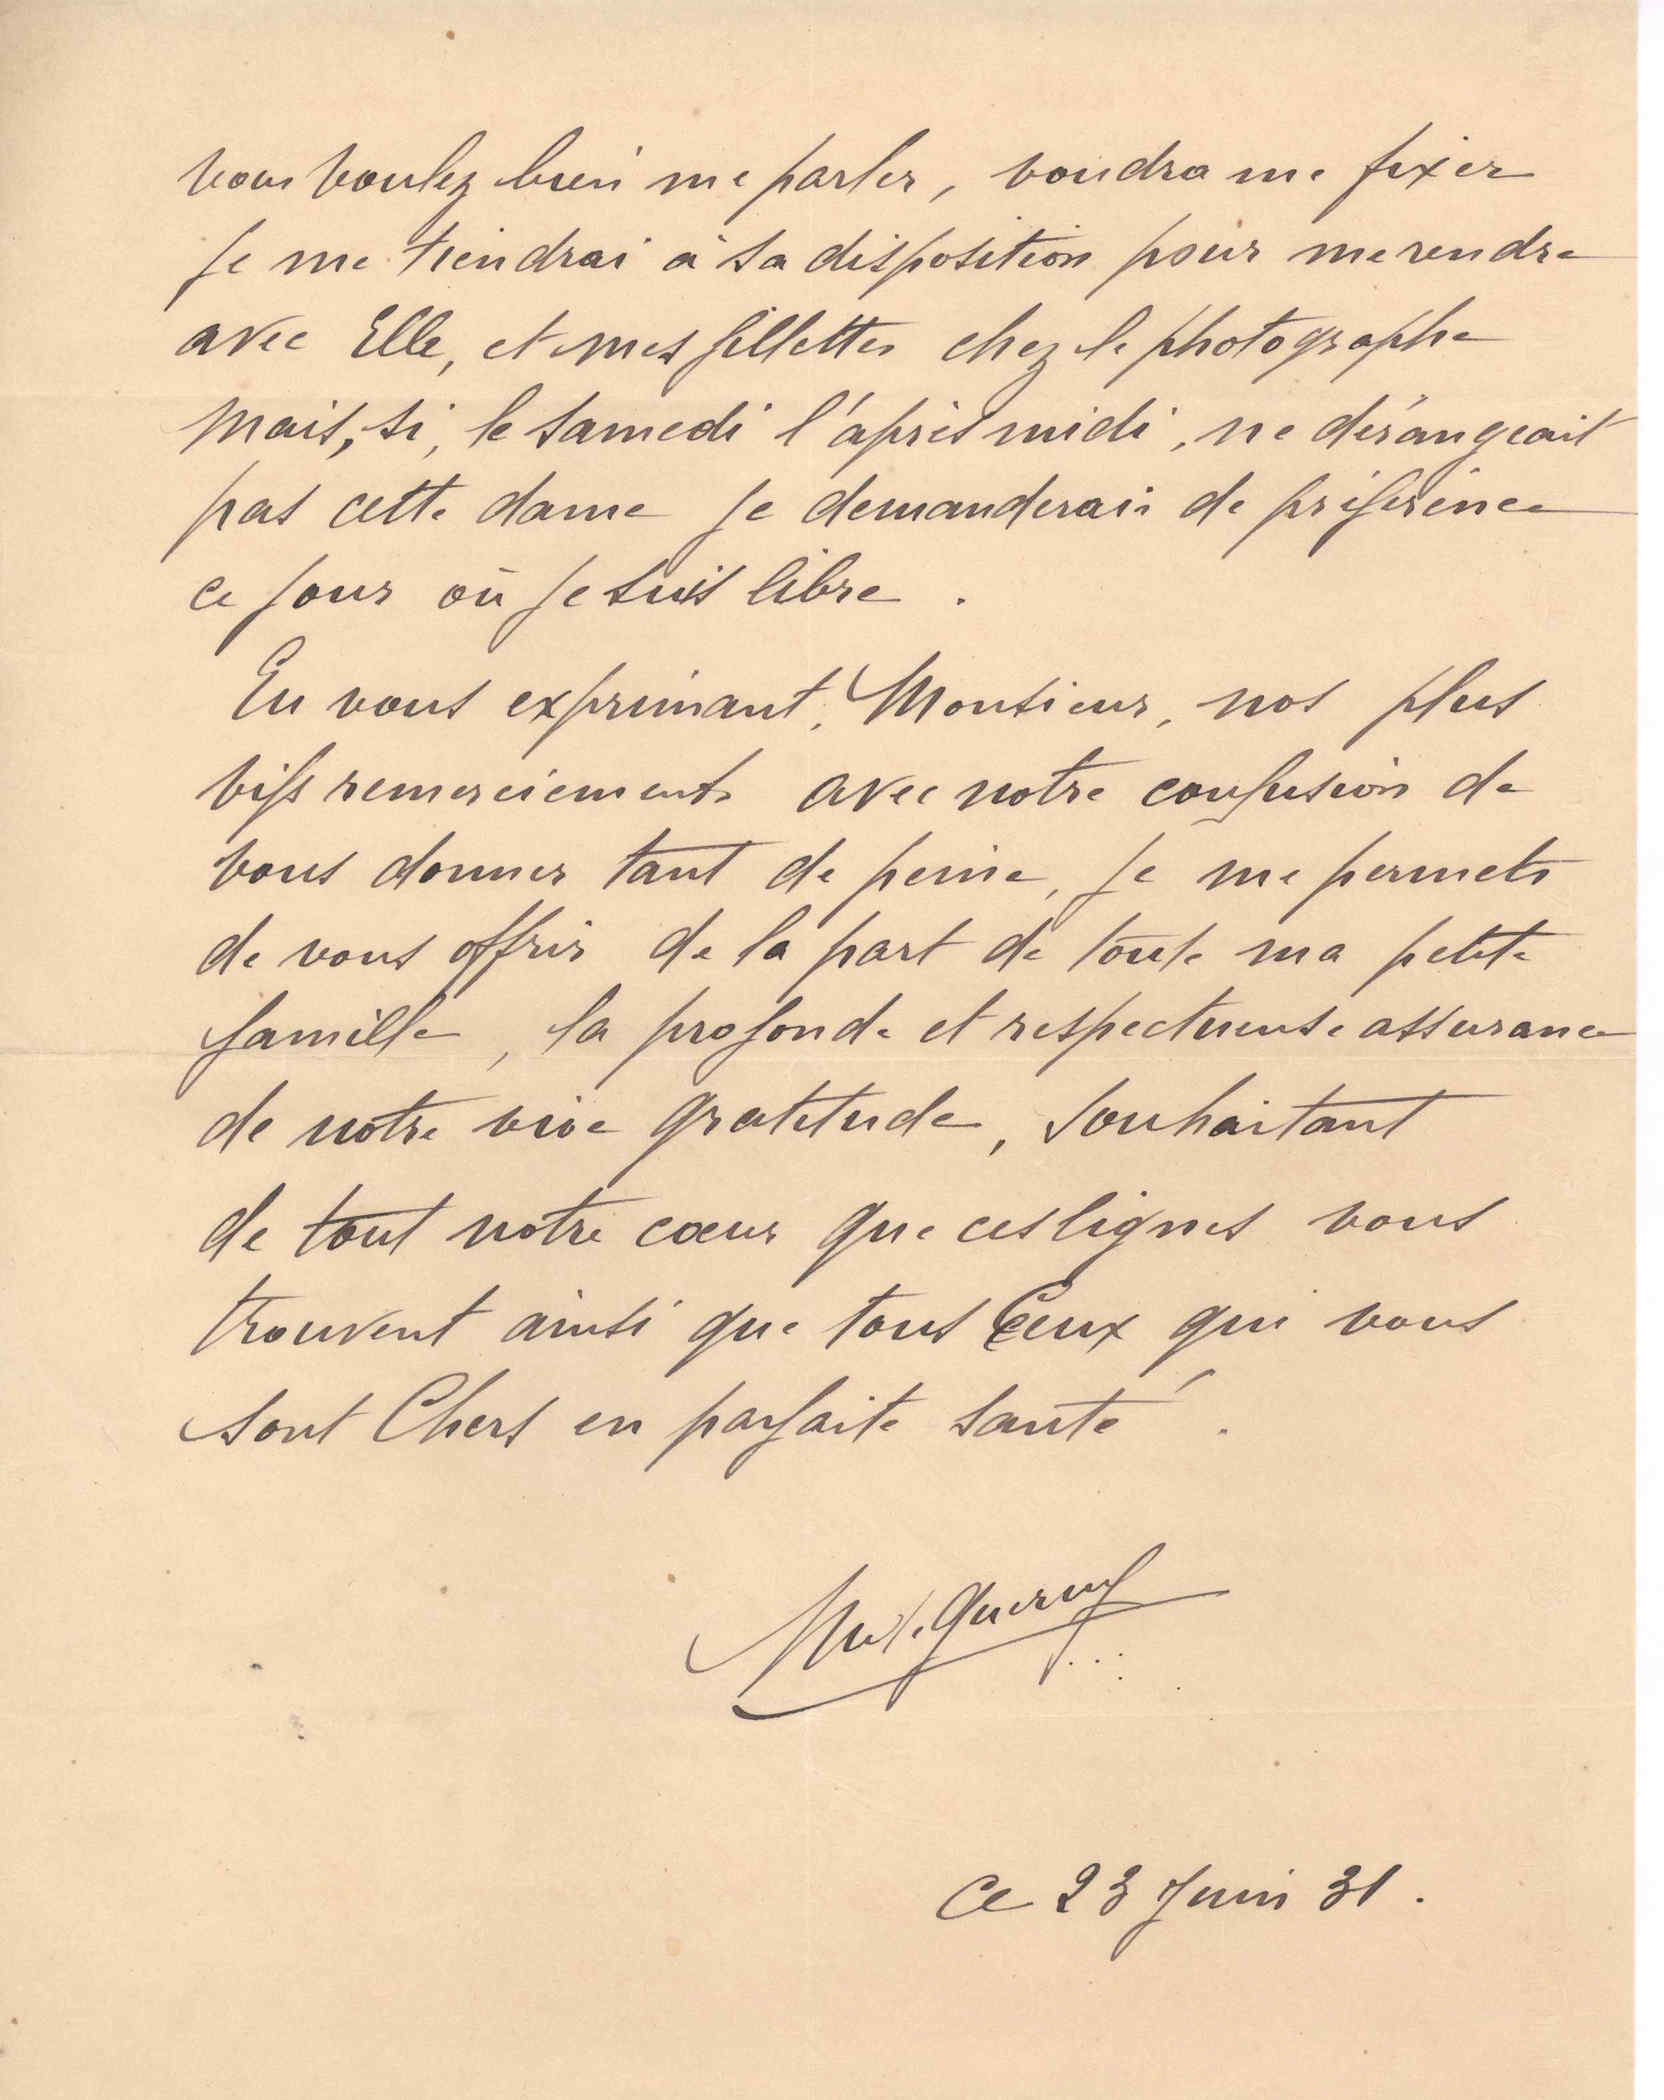 vous voulez bien me parler, voudra me fixer
je me tiendrai à sa disposition pour me rendre
avec Elle, et mes fillettes chez le photographe
mais, si, le samedi l'après midi, ne dérangeait
pas cette dame je demanderais de préférence
ce jour où je suis libre.
En vous exprimant, Monsieur, nos plus
vifs remerciements avec notre confusion de
vous donner tant de peine, je me permets
de vous offrir de la part de toute ma petite
famille, la profonde et respectueuse assurance
de notre vive gratitude, souhaitant
de tout notre cœur que ces lignes vous
trouvent ainsi que tous Ceux qui vous
sont Chers en parfaite santé.
Ce 23 Juin 31.